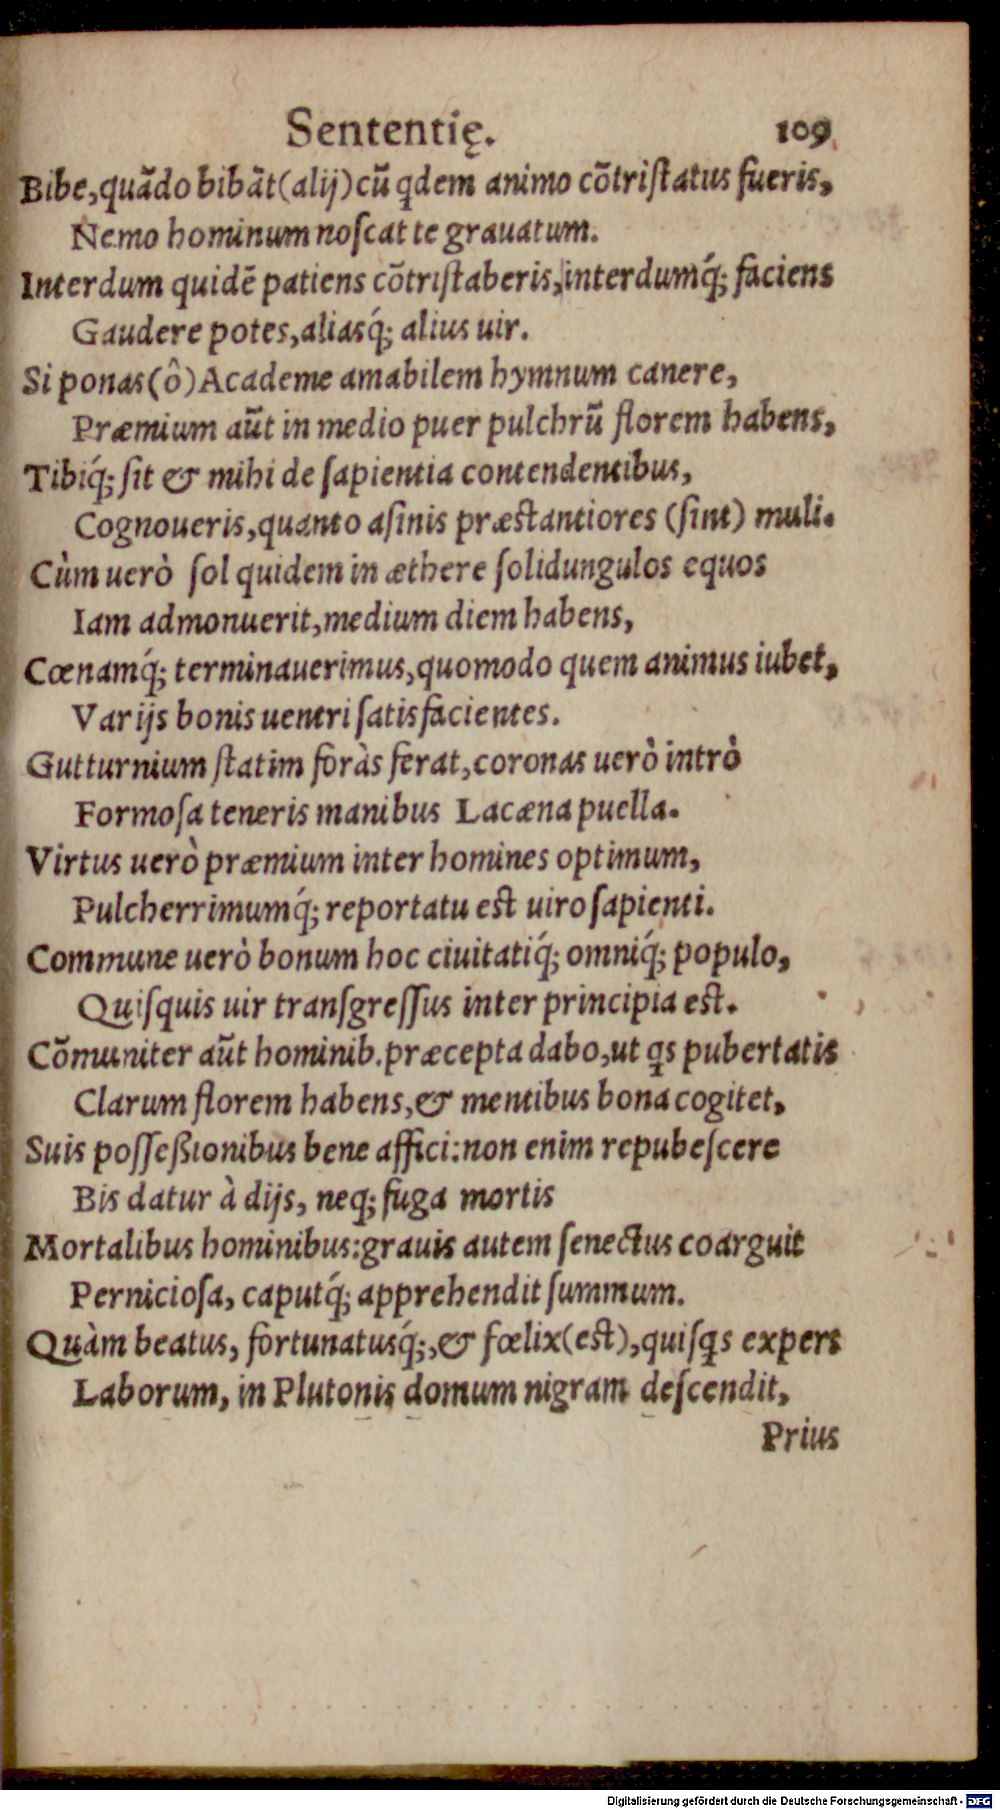 Sententię. 109
Bibe,quãdo bibãt(alij)cũ qdem animo cõtriſtatus fueris,
Nemo hominum noſcat te grauatum.
Interdum quidẽ patiens cõtriſtaberis,interdumq́; faciens
Gaudere potes,aliasq́; alius uir.
Si ponas(ô)Academe amabilem hymnum canere,
Præmium aũt in medio puer pulchrũ florem habens,
Tibiq́; ſit & mihi de ſapientia contendentibus,
Cognoueris,quanto aſinis præſtantiores (ſint) muli.
Cùm uerò ſol quidem in æthere ſolidungulos equos
Iam admonuerit,medium diem habens,
Cœnamq́; terminauerimus,quomodo quem animus iubet,
Varijs bonis uentri ſatisfacientes.
Gutturnium ſtatim foràs ferat,coronas uerò intrò
Formoſa teneris manibus Lacæna puella.
Virtus uerò præmium inter homines optimum,
Pulcherrimumq́; reportatu eſt uiro ſapienti.
Commune uerò bonum hoc ciuitatiq́; omniq́; populo,
Quiſquis uir tranſgreſſus inter principia eſt.
Cõmuniter aũt hominib.præcepta dabo,ut qs pubertatis
Clarum florem habens,& mentibus bona cogitet,
Suis poſſeßionibus bene affici:non enim repubeſcere
Bis datur à dijs, neq; fuga mortis
Mortalibus hominibus:grauis autem ſenectus coarguit
Pernicioſa, caputq́; apprehendit ſummum.
Quàm beatus, fortunatusq́;,& fœlix(eſt),quiſqs expers
Laborum, in Plutonis domum nigram deſcendit,
Prius
Digitalisierung gefördert durch die Deutsche Forschungsgemeinschaft - DFG